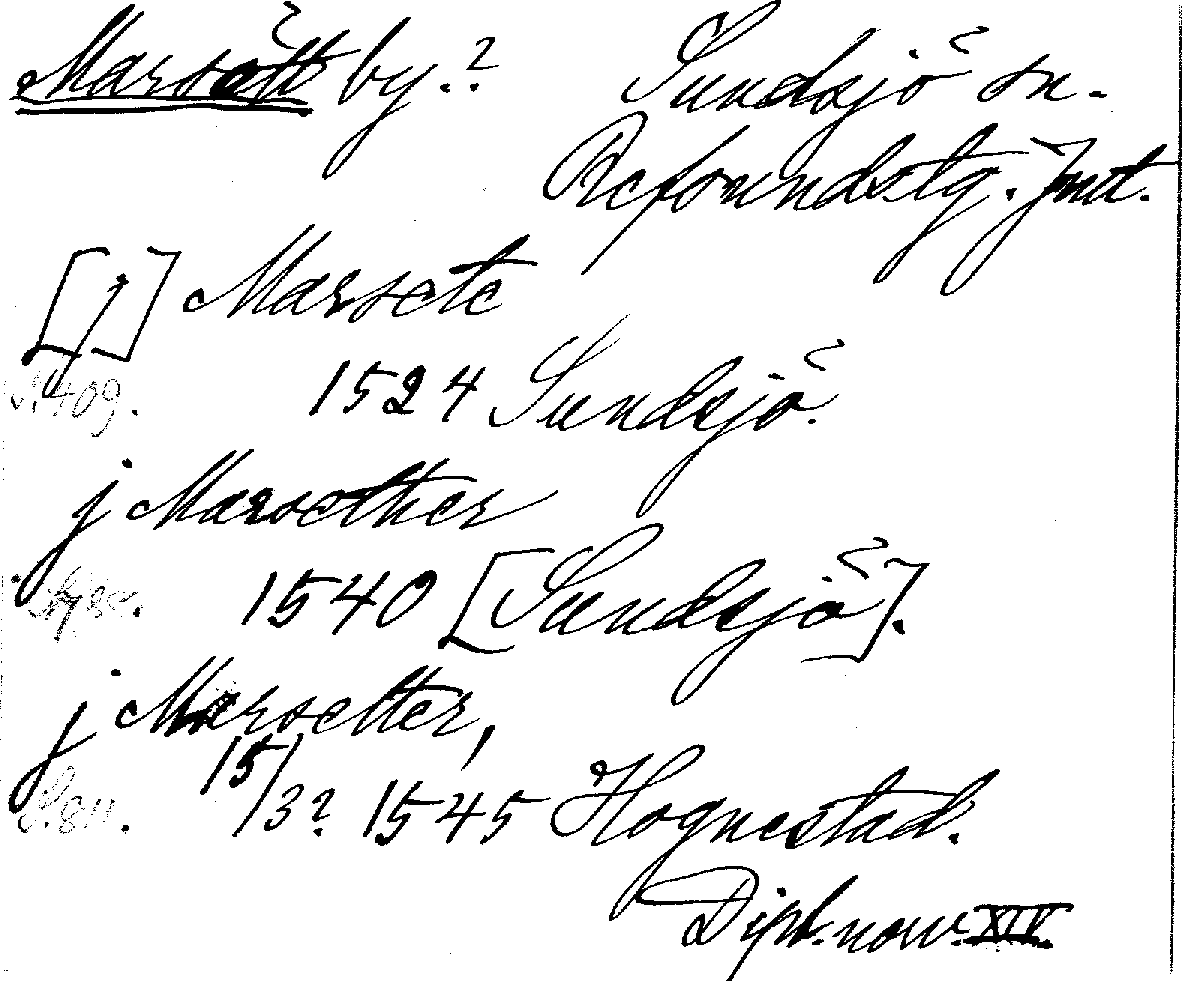 Marsätt by.? Sundsjö sn.
Refsundstg. Jmt.
[j] Marsete
S. 409. 1524 Sundsjö.
j Marsether
1540 [Sundsjö].
j Marsetter,
S. 811. 15/3? 1545 Hognestad.
Dipl. norv. XIV.